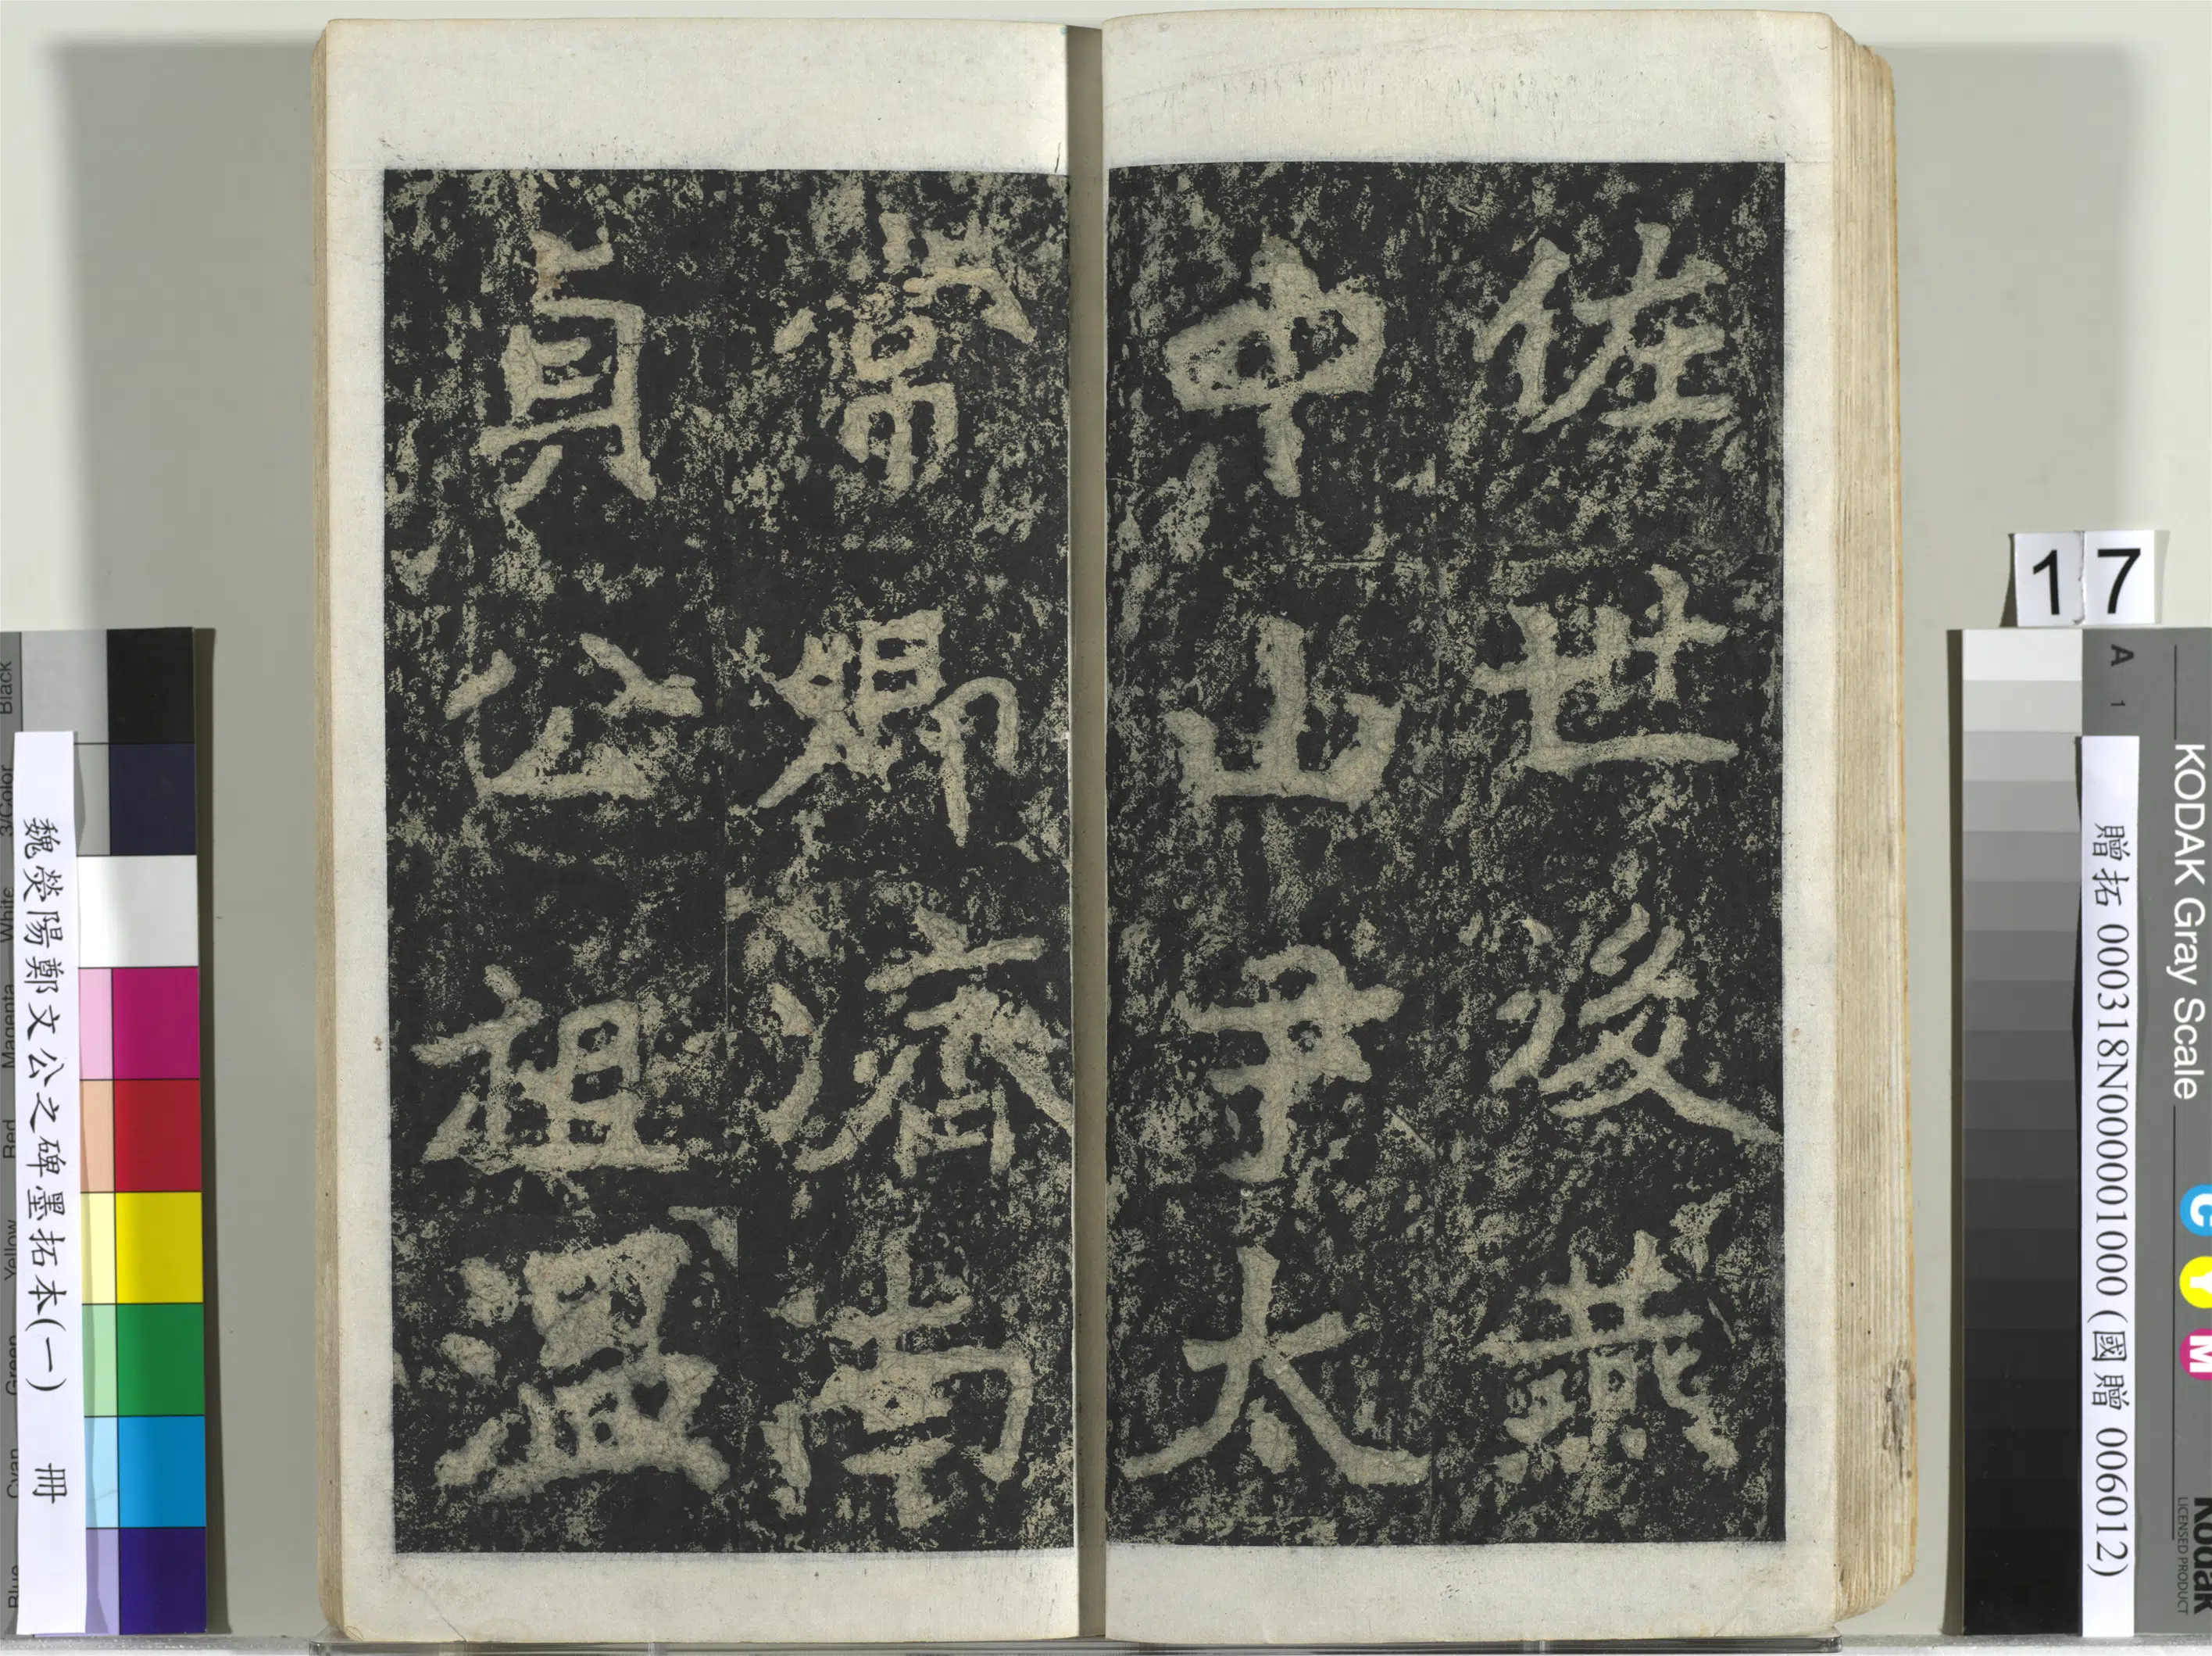 佐世後燕
中山尹太
常卿濟南
貞公祖溫
17
A 1
KODAK Gray Scale
C Y M
Kodak
LICENSED PRODUCT
贈拓 000318N000001000 (國贈 006012)
魏熒陽鄭文公之碑墨拓本(一) 冊
Blue Cyan Green Yellow Red Magenta White 3/Color Black